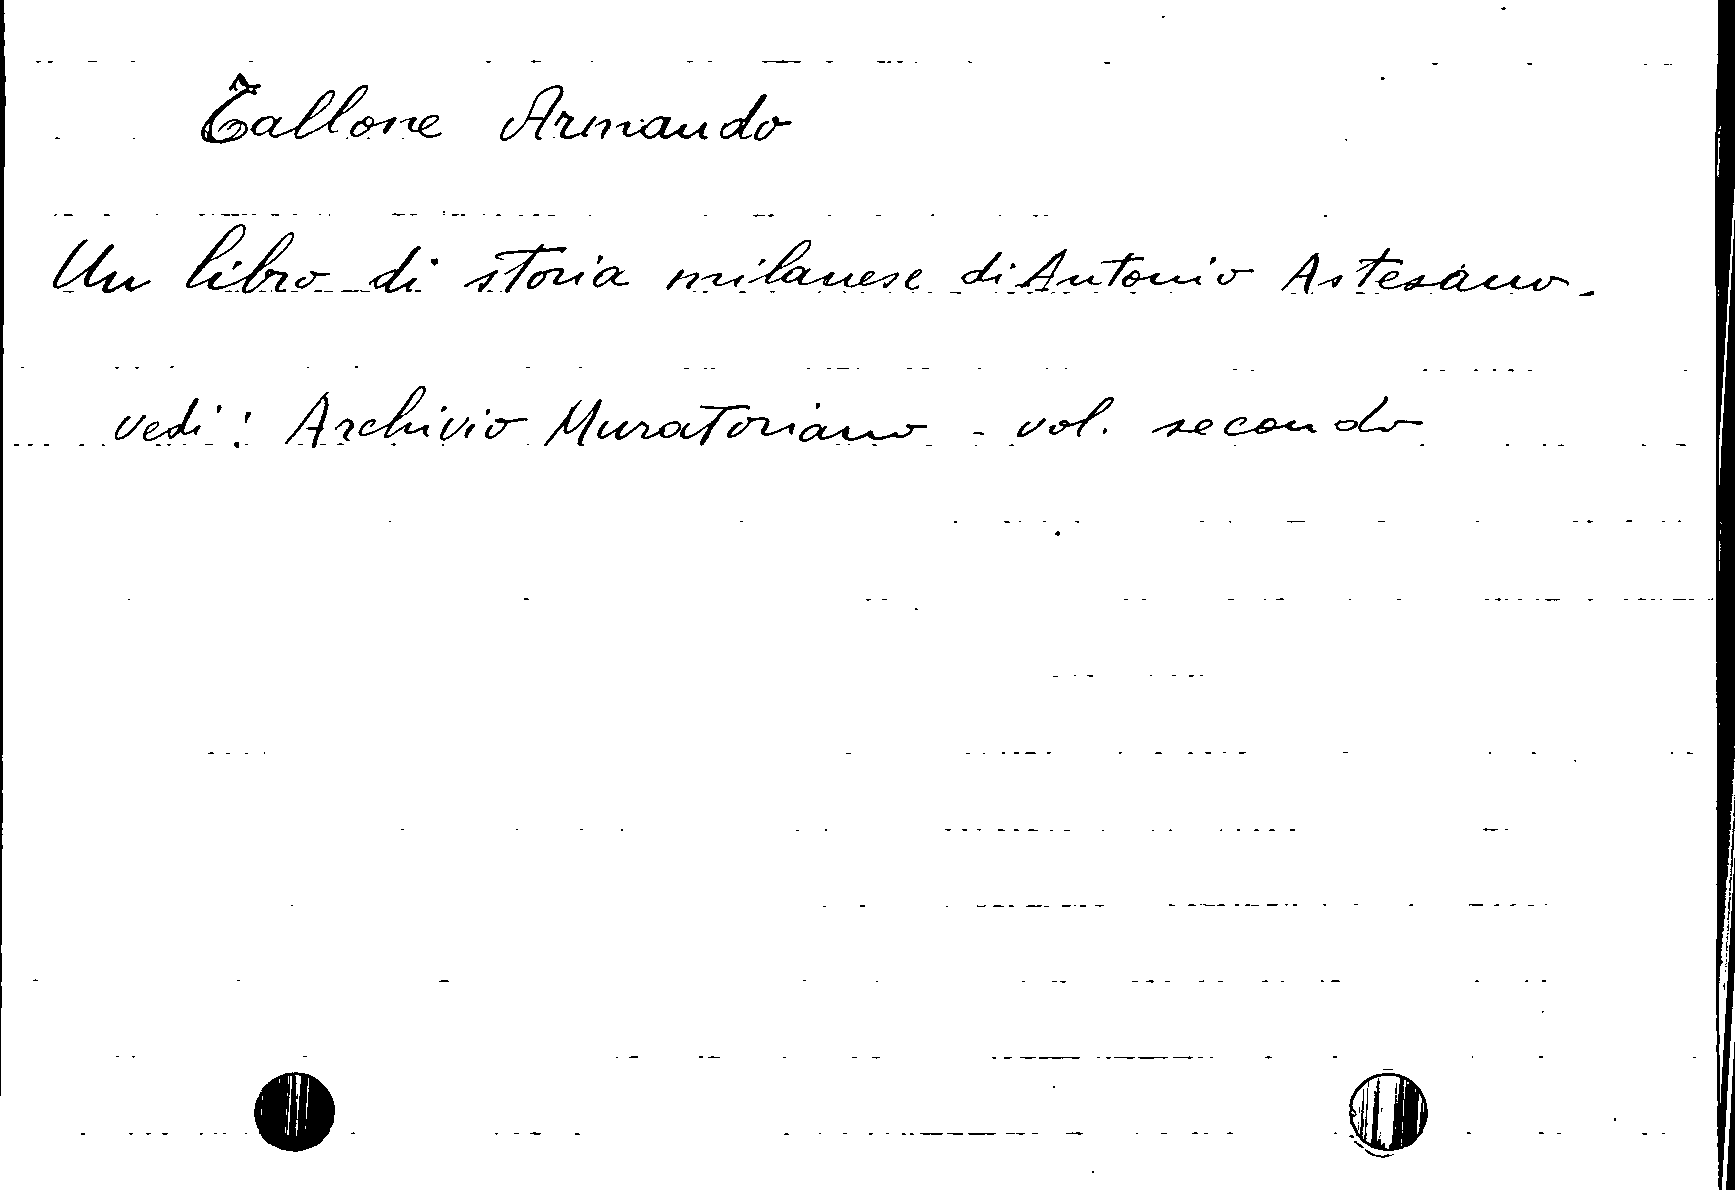 Tallone Armando
Un libro di storia milanese di Antonio Astesano.
vedi: Archivio Muratoriano - vol. secondo